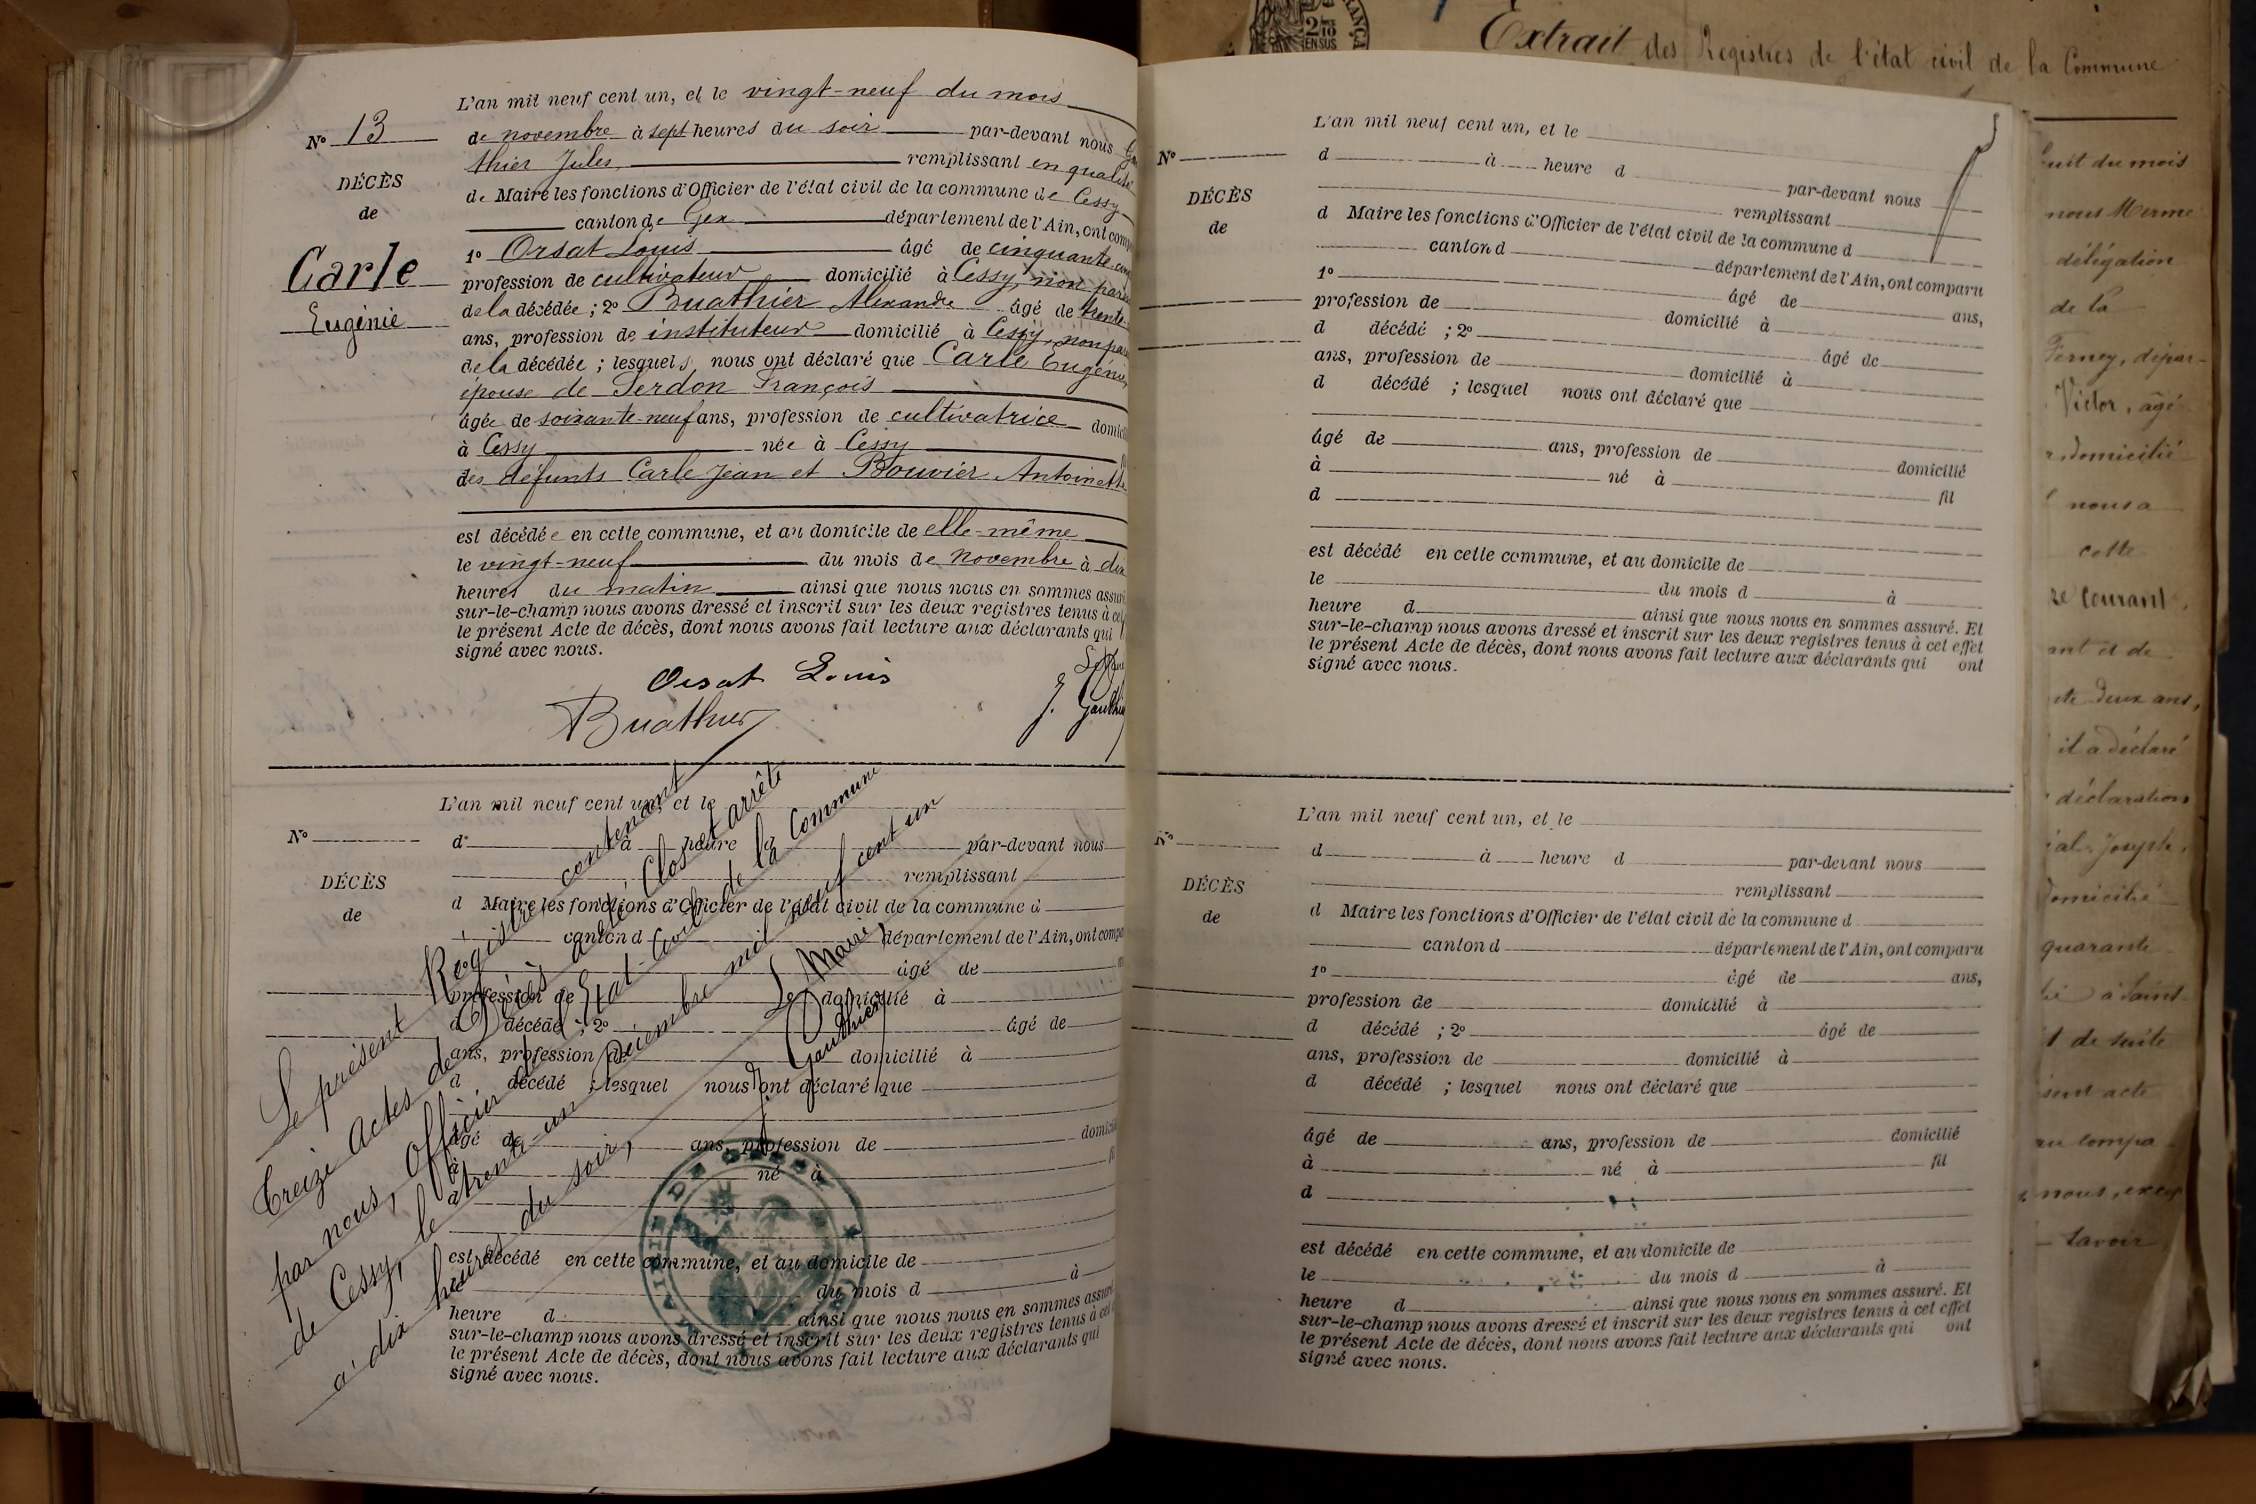 L'an mil neuf cent un, et le vingt-neuf du mois
N° 13
de novembre à sept heures du soir par-devant nous
thier Jules, remplissant en qualité
DÉCÈS
de Maire les fonctions d'Officier de l'état civil de la commune de Cessy
de
canton de Gex département de l'Ain, ont
1° Orsat Louis âgé de cinquante
Carle
profession de cultivateur domicilié à Cessy, non
Eugénie
de la décédée ; 2° Buathier Alexandre âgé de trente
ans, profession de instituteur domicilié à Cessy, non
de la décédée ; lesquels nous ont déclaré que Carle Eugénie,
épouse de Perdon François
âgée de soixante-neuf ans, profession de cultivatrice
à Cessy née à Cessy
des défunts Carle Jean et Bouvier Antoinette
est décédée en cette commune, et au domicile de elle-même
le vingt-neuf du mois de novembre à dix
heures du matin ainsi que nous nous en sommes
sur-le-champ nous avons dressé et inscrit sur les deux registres tenus à
le présent Acte de décès, dont nous avons fait lecture aux déclarants qui
signé avec nous.
Orsat Louis
Buathier
J. Gauthier
L'an mil neuf cent un, et le
N°
d à heure d par-devant nous
remplissant
DÉCÈS
d Maire les fonctions d'Officier de l'état civil de la commune d
de
canton d département de l'Ain, ont
âgé de
profession de domicilié à
d décédé ; 2° âgé de
ans, profession de domicilié à
d décédé ; lesquel nous ont déclaré que
âgé de ans, profession de
à né à
est décédé en cette commune, et au domicile de
du mois d à
heure d ainsi que nous nous en sommes
sur-le-champ nous avons dressé et inscrit sur les deux registres tenus à
le présent Acte de décès, dont nous avons fait lecture aux déclarants qui
signé avec nous.
Le présent Régistre, contenant
treize Actes de Décès a été Clos et arrêté
par nous, Officier de l'Etat-Civil de la Commune
de Cessy, le trente-un Décembre mil neuf cent un
à dix heures du soir,
Le Maire,
J. Gauthier
MAIRIE DE CESSY
L'an mil neuf cent un, et le
N°
d à heure d
par-devant nous
DÉCÈS
remplissant
de
d Maire les fonctions d'Officier de l'état civil de la commune d
canton d département de l'Ain, ont comparu
1° âgé de ans,
profession de domicilié à
d décédé ; 2° âgé de
ans, profession de domicilié à
d décédé ; lesquel nous ont déclaré que
âgé de ans, profession de domicilié
à né à fil
d
est décédé en cette commune, et au domicile de
le du mois d à
heure d ainsi que nous nous en sommes assuré. Et
sur-le-champ nous avons dressé et inscrit sur les deux registres tenus à cet effet
le présent Acte de décès, dont nous avons fait lecture aux déclarants qui ont
signé avec nous.
L'an mil neuf cent un, et le
N°
d à heure d par-devant nous
DÉCÈS
remplissant
de
d Maire les fonctions d'Officier de l'état civil de la commune d
canton d département de l'Ain, ont comparu
1° âgé de ans,
profession de domicilié à
d décédé ; 2° âgé de
ans, profession de domicilié à
d décédé ; lesquel nous ont déclaré que
âgé de ans, profession de domicilié
à né à fil
d
est décédé en cette commune, et au domicile de
le du mois d à
heure d ainsi que nous nous en sommes assuré. Et
sur-le-champ nous avons dressé et inscrit sur les deux registres tenus à cet effet
le présent Acte de décès, dont nous avons fait lecture aux déclarants qui ont
signé avec nous.
Extrait des Registres de l'état civil de la Commune
du mois
nous
délégation
de la
Ferney,
Victor, âgé
domicilié
nous a
cette
courant,
et de
deux ans,
il a déclaré
déclarations
Joseph,
domicilié
quarante
à Saint
de suite
acte
nous,
Savoir